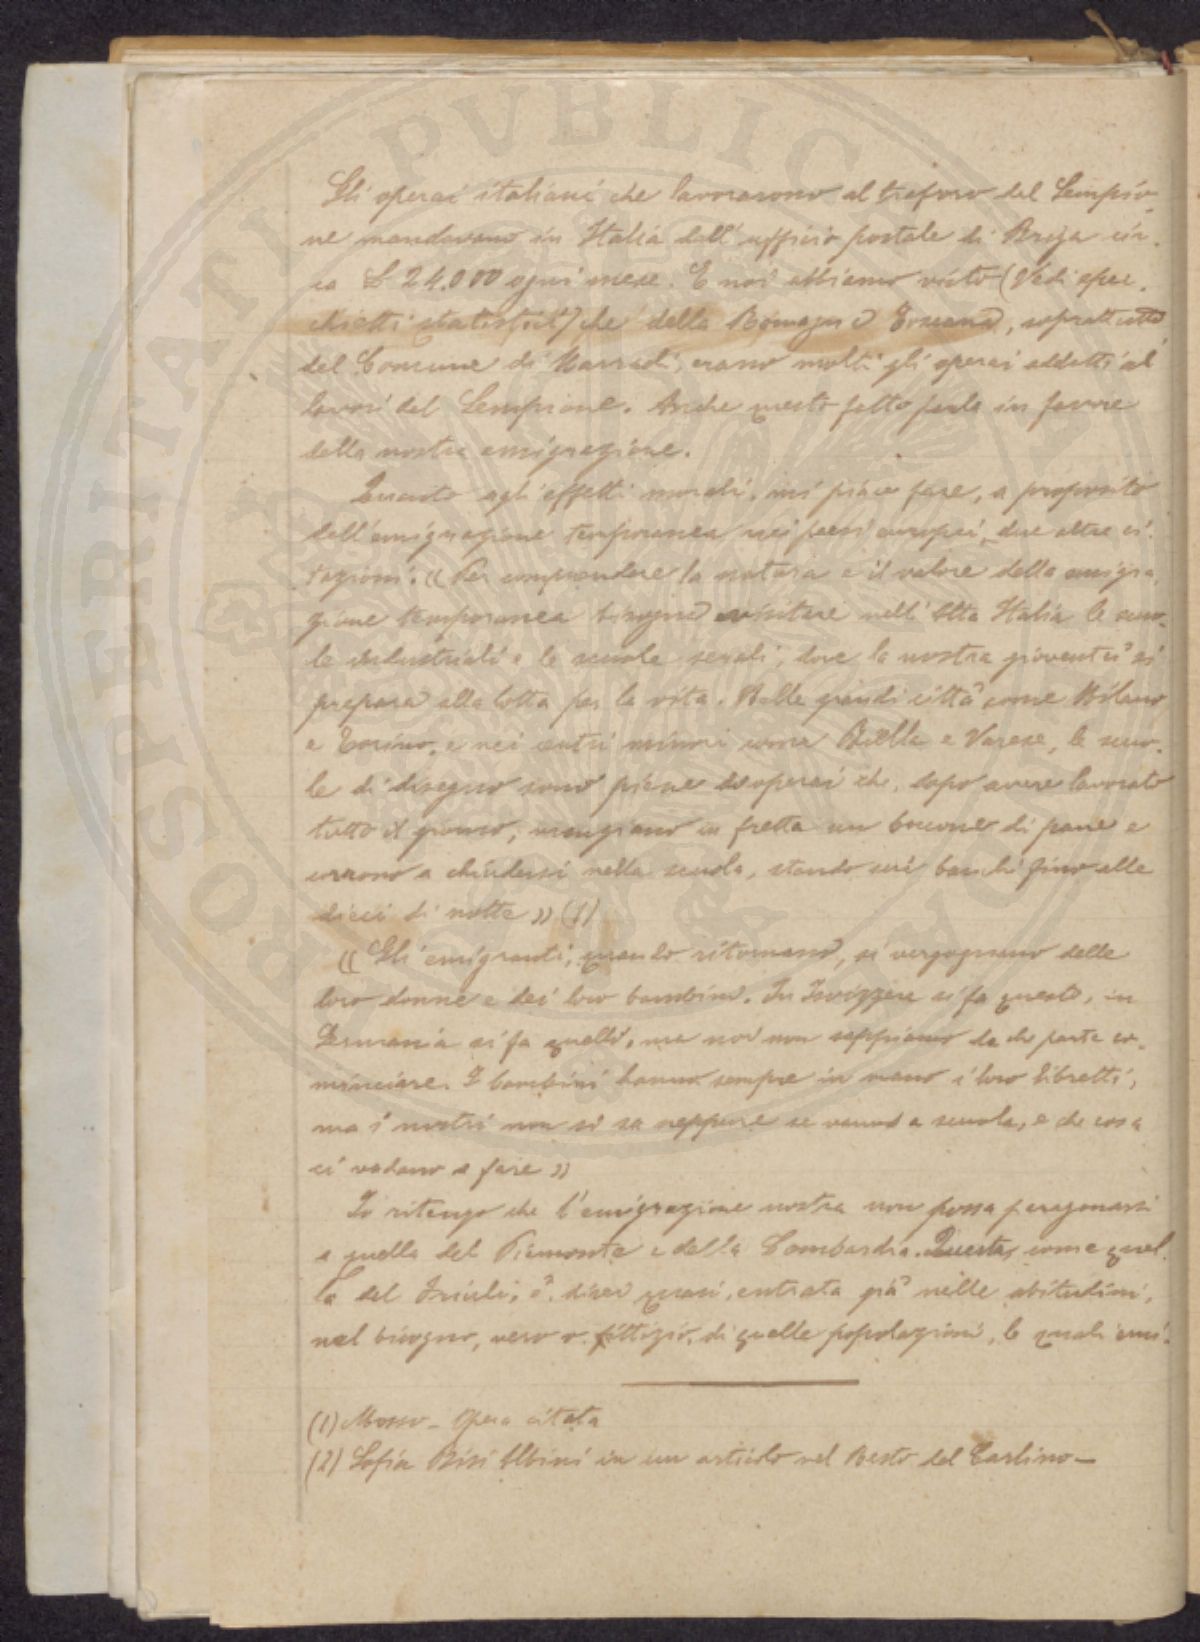 Gli operai italiani che lavorarono al traforo del Sempio-
ne mandavano in Italia dall'ufficio postale di Briga cir-
ca L 24.000 ogni mese. E noi abbiamo visto (Vedi spec-
chietti statistici) che della Romagna Toscana, soprattutto
del Comune di Marradi, erano molti gli operai addetti ai
lavori del Sempione. Anche questo fatto parla in favore
della nostra emigrazione.
Quanto agli effetti morali, mi piace fare, a proposito
dell'emigrazione temporanea nei paesi europei, due altre ci-
tazioni: « Per comprendere la natura e il valore della emigra-
zione temporanea bisogna visitare nell'Alta Italia le scuo-
le industriali e le scuole serali, dove la nostra gioventù si
prepara alla lotta per la vita. Nelle grandi città come Milano
e Torino, e nei centri minori come Biella e Varese, le scuo-
le di disegno sono piene di operai che, dopo avere lavorato
tutto il giorno, mangiano in fretta un boccone di pane e
corrono a chiudersi nella scuola, stando sui banchi fino alle
dieci di notte » (1)
« Gli emigranti, quando ritornano, si vergognano delle
loro donne e dei loro bambini. In Isvizzera si fa questo, in
Germania si fa quello, ma noi non sappiamo da che parte co-
minciare. I bambini hanno sempre in mano i loro libretti,
ma i nostri non si sa neppure se vanno a scuola, e che cosa
ci vadano a fare »
Io ritengo che l'emigrazione nostra non possa paragonarsi
a quella del Piemonte e della Lombardia. Questa, come quel-
la del Friuli, è, direi quasi, entrata già nelle abitudini,
nel bisogno, vero o fittizio, di quelle popolazioni, le quali emi-
(1) Mosso - Opera citata
(2) Sofia Bisi Albini in un articolo nel Resto del Carlino -
PROSPERITATI PVBLICAE